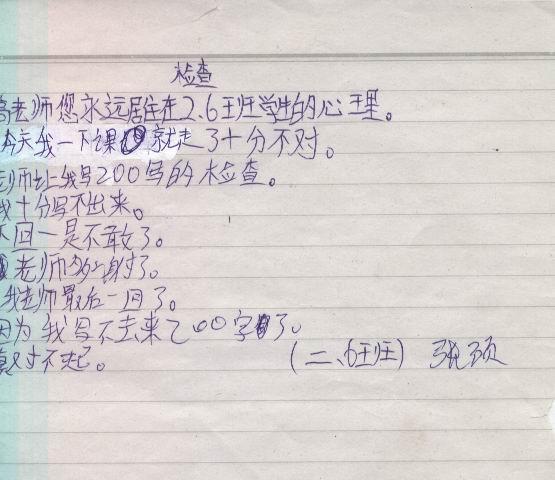 检查
高老师您永远居住在2.6班学生的心理。
今天我一下课就走了十分不对。
老师让我写200写的检查。
我十分写不出来。
下回一是不敢了。
老师多谢了。
我老师最后一回了。
因为我写不去来200字了。
真对不起。
(二、6班) 张